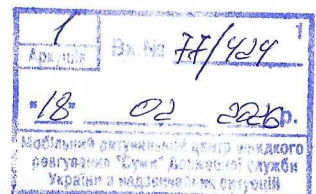 1
1
Аркушів
Вх № 77/424
"18" 02 2026р.
Мобільний рятувальний центр швидкого
реагування "Суми" Державної служби
України з надзвичайних ситуацій